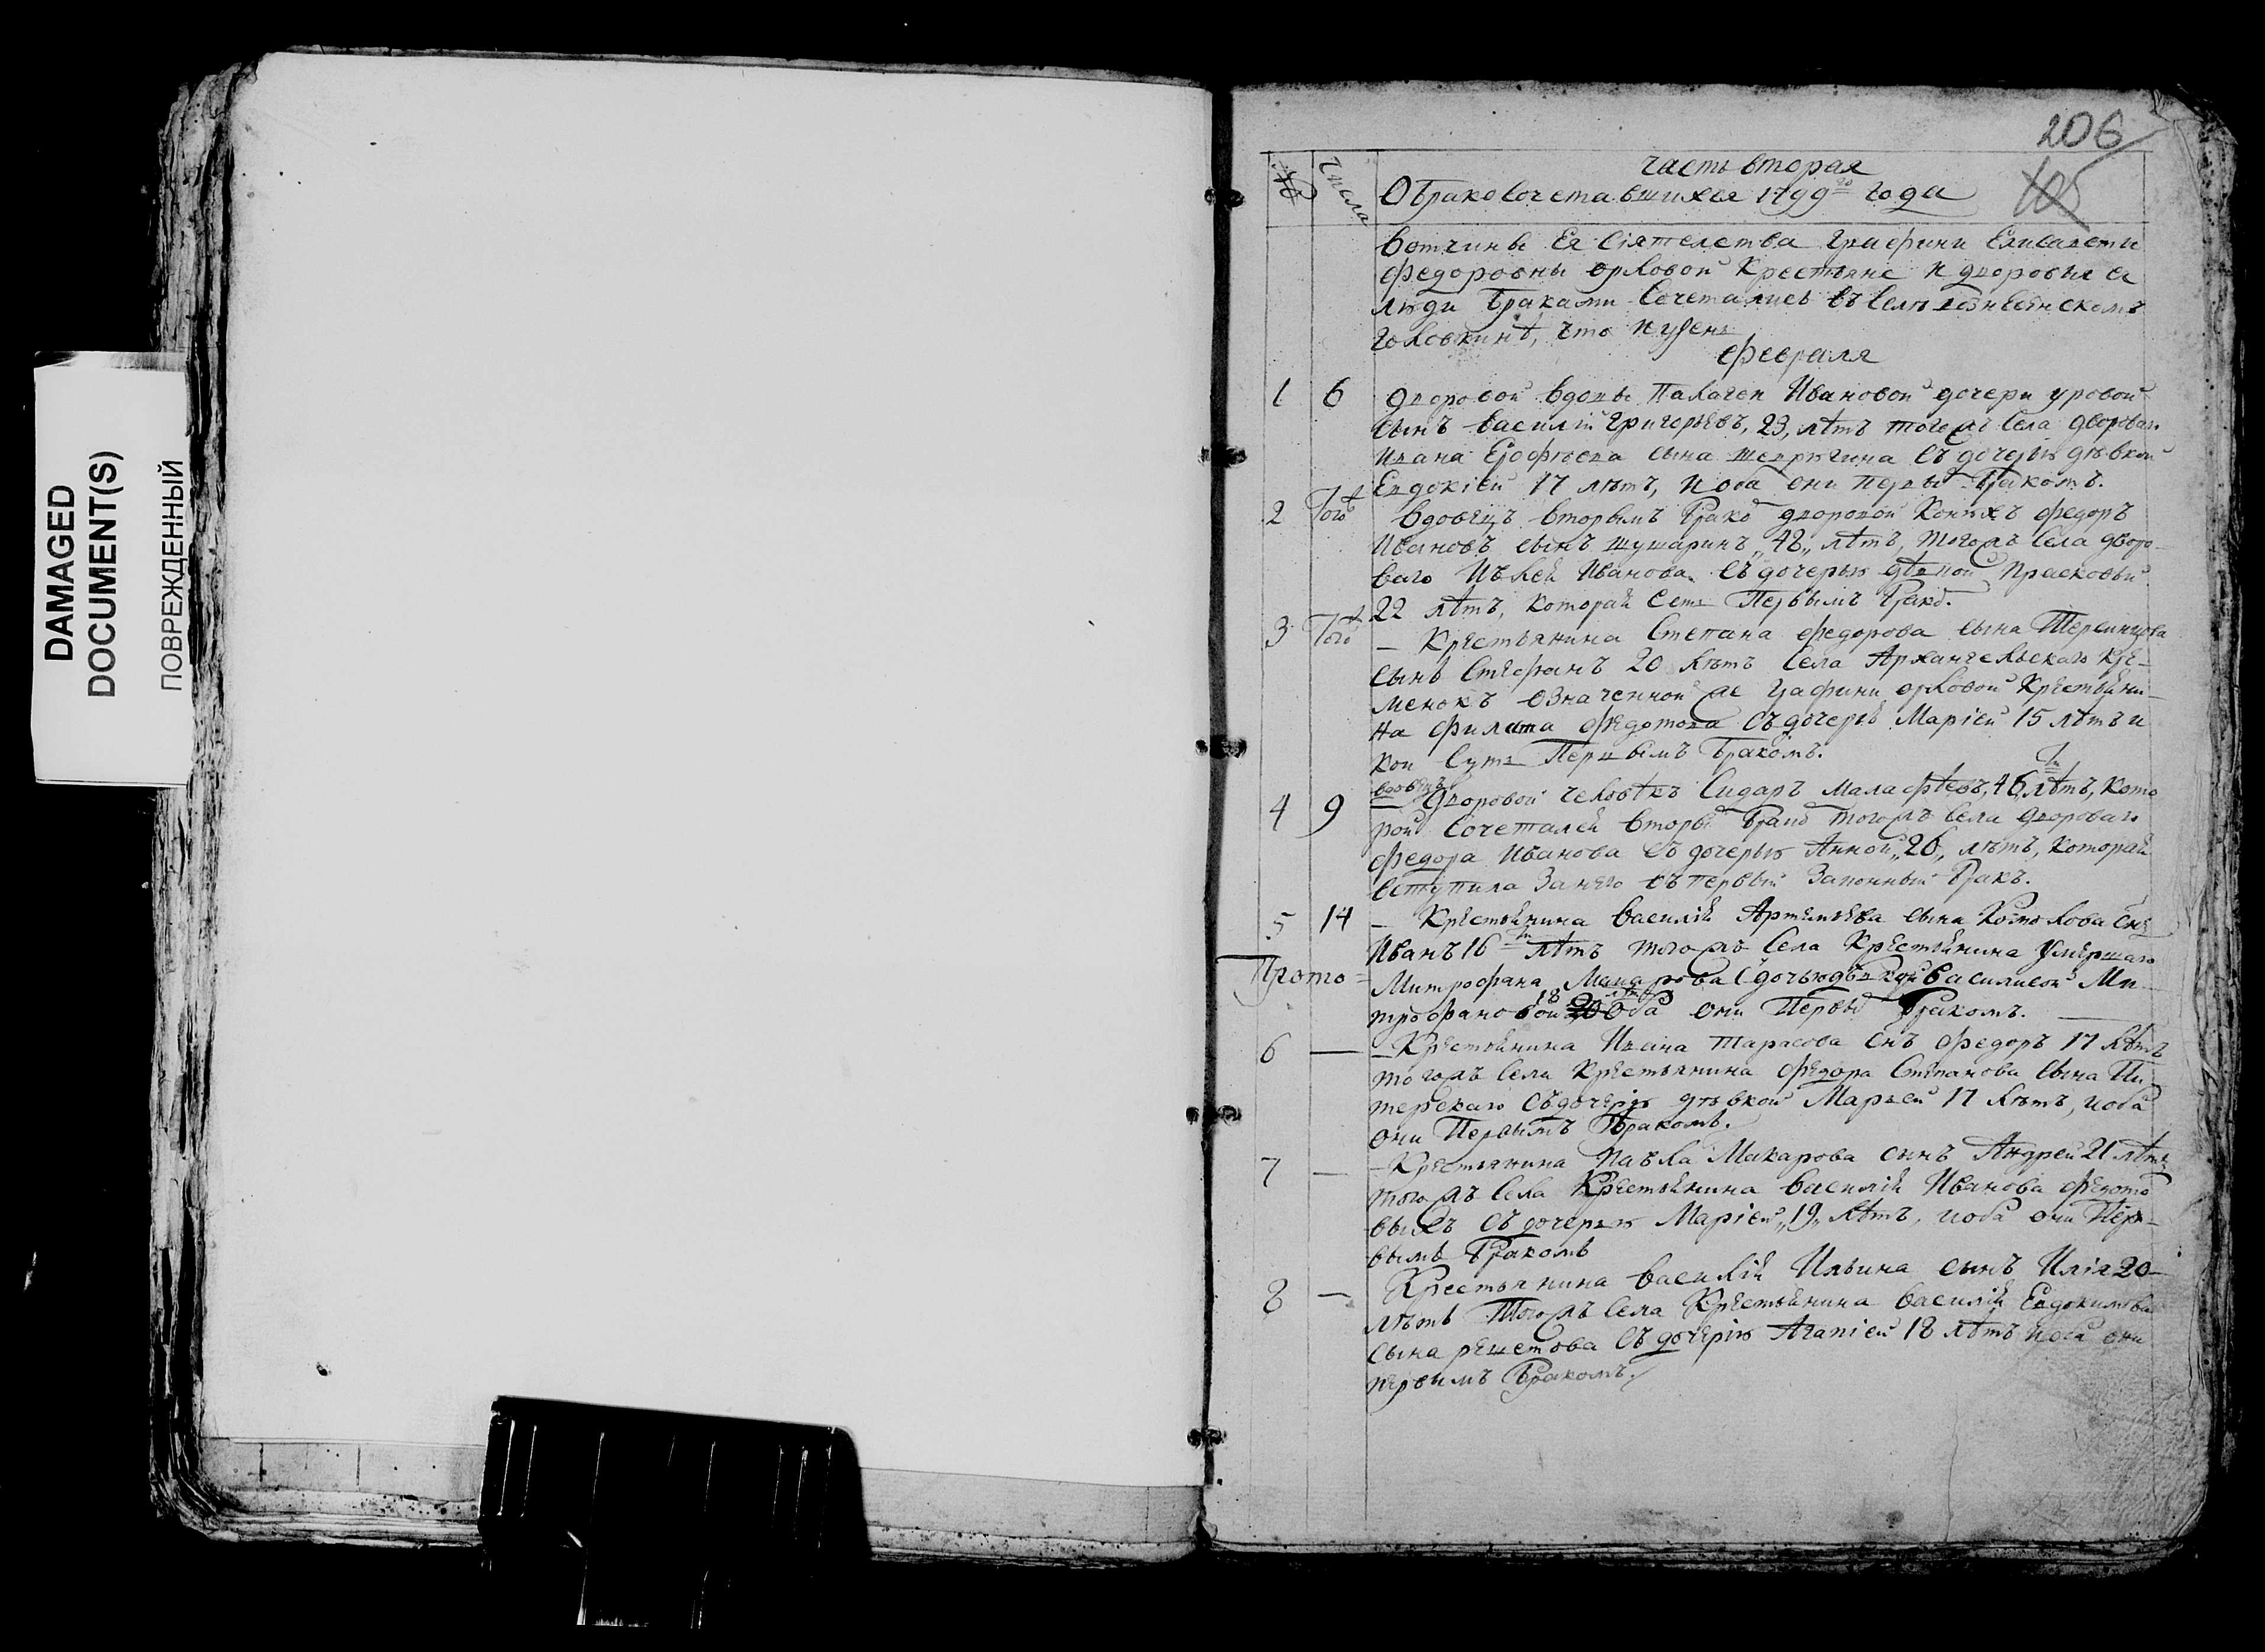 DAMAGED
DOCUMENT(S)
ПОВРЕЖДЕННЫЙ
206
105
№
Числа
Часть вторая
О бракосочетавшихся 1799го года
вотчины Ея Сіятелства Графини Елисавети
Федоровны Орловой крестьяне и дворовыя ея
люди браками сочетались въ селѣ Вознесѣнскомъ
Головкинѣ, что и
февраля
1 6 дворовой вдовы Палагеи Ивановой дочери уровой
сынъ Василій Григорьевъ, 23, лѣтъ тогожъ села дворова
Ивана Ерофѣева сына съ дочерью дѣвкой
Евдокіей 17 лѣтъ, и оба они первы бракомъ.
2 Того вдовецъ вторымъ бракό дворовой конюхъ Федоръ
Ивановъ сынъ шушаринъ „48„ лѣтъ, тогожъ села дворо-
ваго Иванова съ дочерью дѣвкой Прасковьи
22 лѣтъ, которая есть первымъ брако.
3 Того — Крестьянина Степана Федорова сына
сынъ Стефанъ 20 лѣтъ села Архангельскаго Кре-
менокъ означенной же Графини Орловой крестьяни-
на Филата Федотова съ дочерью Маріей 15 лѣтъ и
кои суть первымъ бракомъ.
вдовецъ
4 9 — дворовой человѣкъ Сидаръ Малафѣевъ, 46 лѣтъ, кото
рой сочетался вторы брако тогожъ села дворова
Федора Иванова съ дочерью Анной „26„ лѣтъ, которая
вступила за него въ первый законный бракъ.
5 14 — Крестьянина Василія Артемьева сына снъ
Иванъ 16 лѣтъ тогожъ села крестьянина умершаго
Прото-
Митрофана с дочью дѣвкой Василисой Ми-
трофановой 18 20 лѣтъ оба они первы бракомъ.
6 — — Крестьянина Ивана Тарасова снъ Федоръ 17 лѣтъ
тогожъ села крестьянина Федора Степанова сына Пи-
терскаго съ дочерію дѣвкой Марьей 17 лѣтъ, и оба
они первымъ бракомъ.
7 — — Крестьянина Павла Макарова снъ Андрей 21 лѣтъ
тогожъ села крестьянина Василія Иванова Федото
выхъ съ дочерью Маріей „19„ лѣтъ, и оба они пер-
вымъ бракомъ
8 — Крестьянина Василія Ильина сынъ Илія 20
лѣтъ тогожъ села крестьянина Василія Евдокимова
сына решетова съ дочерію Агапіей 18 лѣтъ и оба они
первымъ бракомъ.